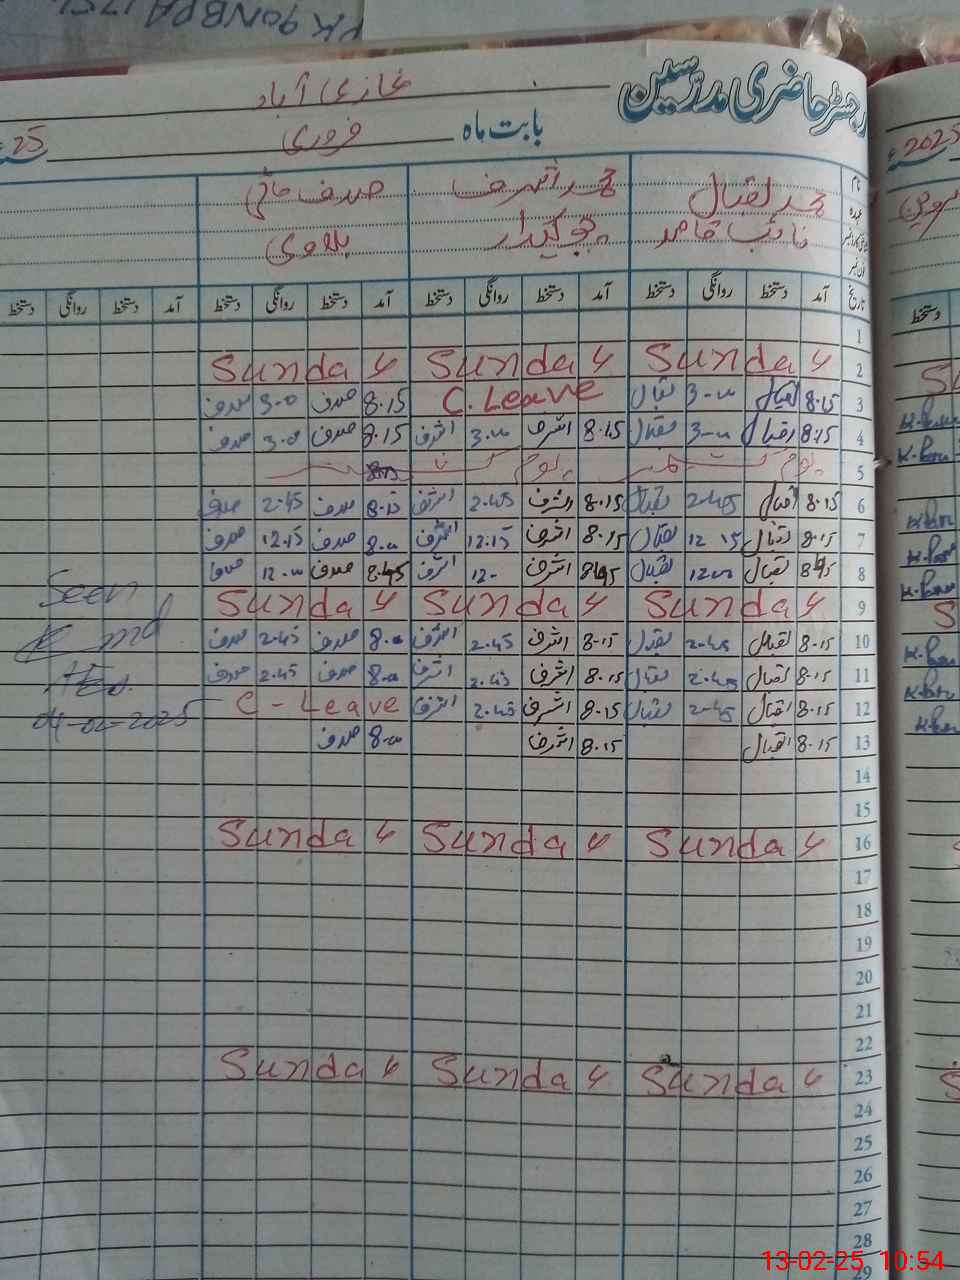 رجسٹر حاضری مدرسین غازی آباد
بابت ماہ فروری 25
نام محمد اقبال محمد اشرف صدف
عہدہ نائب قاصد چوکیدار
تاریخ آمد دستخط روانگی دستخط آمد دستخط روانگی دستخط آمد دستخط روانگی دستخط آمد دستخط روانگی دستخط
1
2 Sunday Sunday Sunday
3 8.15 اقبال 3-00 اقبال C. Leave 8.15 صدف 3.0 صدف
4 8.15 اقبال 3-00 اقبال 8.15 اشرف 3.00 اشرف 8.15 صدف 3.0 صدف
5 یوم کشمیر یوم کشمیر
6 8.15 اقبال 2-45 اقبال 8.15 اشرف 2.45 اشرف 8.15 صدف 2.45 صدف
7 8.15 اقبال 12 15 اقبال 8.15 اشرف 12.15 اشرف 8.00 صدف 12.15 صدف
8 8.45 اقبال 12.00 اقبال 8.45 اشرف 12- اشرف 8.45 صدف 12.00 صدف
9 Sunday Sunday Sunday
10 8.15 اقبال 2-45 اقبال 8.15 اشرف 2.45 اشرف 8.00 صدف 2.45 صدف
11 8.15 اقبال 2.45 اقبال 8.15 اشرف 2.45 اشرف 8.00 صدف 2.45 صدف
12 8.15 اقبال 2-45 اقبال 8.15 اشرف 2.45 اشرف C - Leave
13 8.15 اقبال 8.15 اشرف 8.00 صدف
14
15
16 Sunday Sunday Sunday
17
18
19
20
21
22
23 Sunday Sunday Sunday
24
25
26
27
28
29
Seen
04-02-2025
2025
دستخط
13-02-25 10:54